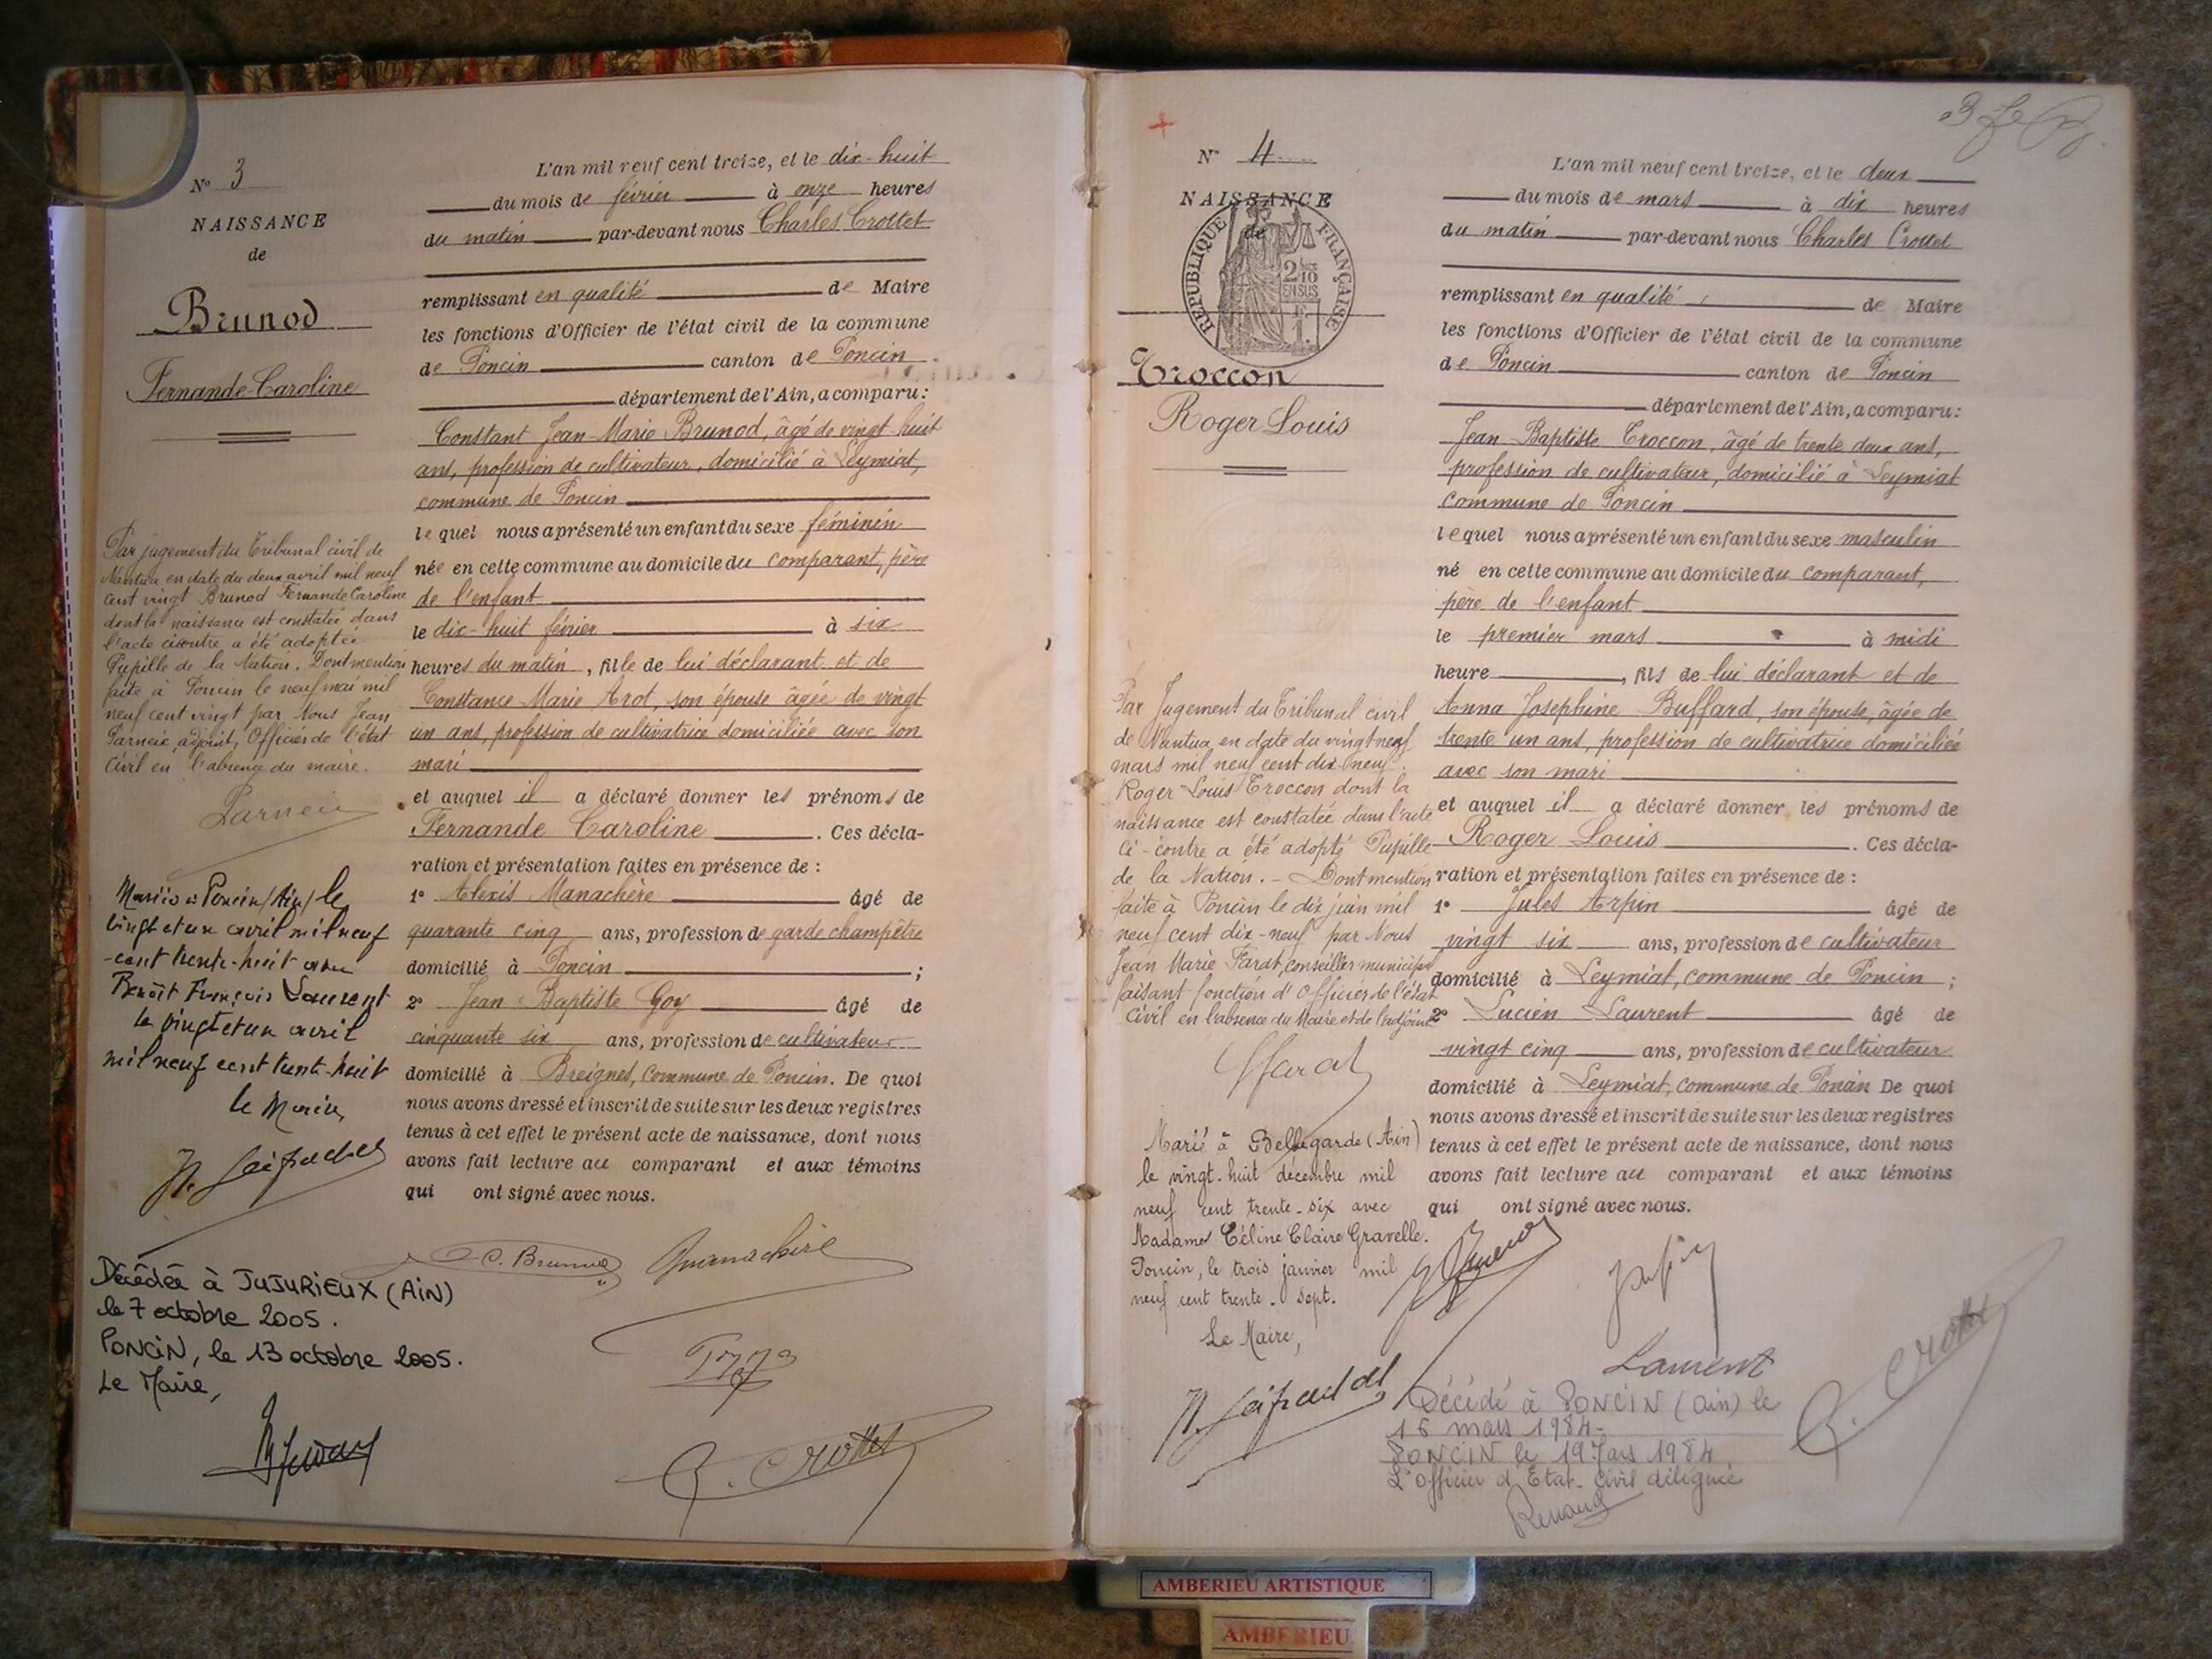 N° 3
NAISSANCE
de
Brunod
Fernande-Caroline
L'an mil neuf cent treize, et le dix-huit
du mois de février à onze heures
du matin par-devant nous Charles Crottet
remplissant en qualité de Maire
les fonctions d'Officier de l'état civil de la commune
de Poncin canton de Poncin
département de l'Ain, a comparu:
Constant Jean-Marie Brunod, âgé de vingt huit
ans, profession de cultivateur, domicilié à Leymiat,
commune de Poncin
lequel nous a présenté un enfant du sexe féminin
née en cette commune au domicile du comparant, père
de l'enfant
le dix-huit février à six
heures du matin, fille de lui déclarant et de
Constance Marie Arot, son épouse âgée de vingt
un ans, profession de cultivatrice domiciliée avec son
mari
et auquel il a déclaré donner les prénoms de
Fernande Caroline. Ces décla-
ration et présentation faites en présence de :
1° Alexis Manachère âgé de
quarante cinq ans, profession de garde champêtre
domicilié à Poncin ;
2° Jean Baptiste Goy âgé de
cinquante six ans, profession de cultivateur
domicilié à Breignes, commune de Poncin. De quoi
nous avons dressé et inscrit de suite sur les deux registres
tenus à cet effet le présent acte de naissance, dont nous
avons fait lecture au comparant et aux témoins
qui ont signé avec nous.
C. Brunod
C. Crottet
Par jugement du Tribunal civil de
Nantua en date du deux avril mil neuf
cent vingt Brunod Fernande Caroline
dont la naissance est constatée dans
l'acte ci-contre a été adoptée
Pupille de la Nation. Dont mention
faite à Poncin le neuf mai mil
neuf cent vingt par Nous Jean
Parneix, adjoint, Officier de l'état
civil en l'absence du maire.
Parneix
Mariée à Poncin (Ain) le
vingt et un avril mil neuf
-cent trente-huit avec
Benoît François Laurent
le vingt et un avril
mil neuf cent trente-huit
le Maire,
Décédée à JUJURIEUX (AIN)
le 7 octobre 2005.
PONCIN, le 13 octobre 2005.
Le Maire,
N° 4
NAISSANCE
de
RÉPUBLIQUE FRANÇAISE
2/10
EN SUS
Troccon
Roger Louis
L'an mil neuf cent treize, et le deux
du mois de mars à dix heures
du matin par-devant nous Charles Crottet
remplissant en qualité de Maire
les fonctions d'Officier de l'état civil de la commune
de Poncin canton de Poncin
département de l'Ain, a comparu:
Jean Baptiste Troccon, âgé de trente deux ans,
profession de cultivateur, domicilié à Leymiat
commune de Poncin
lequel nous a présenté un enfant du sexe masculin
né en cette commune au domicile du comparant,
père de l'enfant
le premier mars à midi
heure, fils de lui déclarant et de
Anna Josephine Buffard, son épouse, âgée de
trente un ans, profession de cultivatrice domiciliée
avec son mari
et auquel il a déclaré donner les prénoms de
Roger Louis. Ces décla-
ration et présentation faites en présence de :
1° Jules Arpin âgé de
vingt six ans, profession de cultivateur
domicilié à Leymiat, commune de Poncin ;
2° Lucien Laurent âgé de
vingt cinq ans, profession de cultivateur
domicilié à Leymiat, commune de Poncin De quoi
nous avons dressé et inscrit de suite sur les deux registres
tenus à cet effet le présent acte de naissance, dont nous
avons fait lecture au comparant et aux témoins
qui ont signé avec nous.
Laurent
C. Crottet
Décédé à PONCIN (Ain) le
15 mars 1984-
PONCIN le 19 Mars 1984
L'officier d'Etat-civil délégué
Renaud
Par Jugement du Tribunal civil
de Nantua en date du vingt neuf
mars mil neuf cent dix-neuf.
Roger-Louis Troccon dont la
naissance est constatée dans l'acte
ci-contre a été adopté Pupille
de la Nation. - Dont mention
faite à Poncin le dix juin mil
neuf cent dix-neuf par Nous
Jean Marie Farat, conseiller municipal
faisant fonction d'Officier de l'état
civil en l'absence du Maire et de l'adjoint
Marié à Bellegarde (Ain)
le vingt-huit décembre mil
neuf cent trente-six avec
Madame Céline Claire Gravelle.
Poncin, le trois janvier mil
neuf cent trente-sept.
Le Maire,
AMBERIEU ARTISTIQUE
AMBERIEU